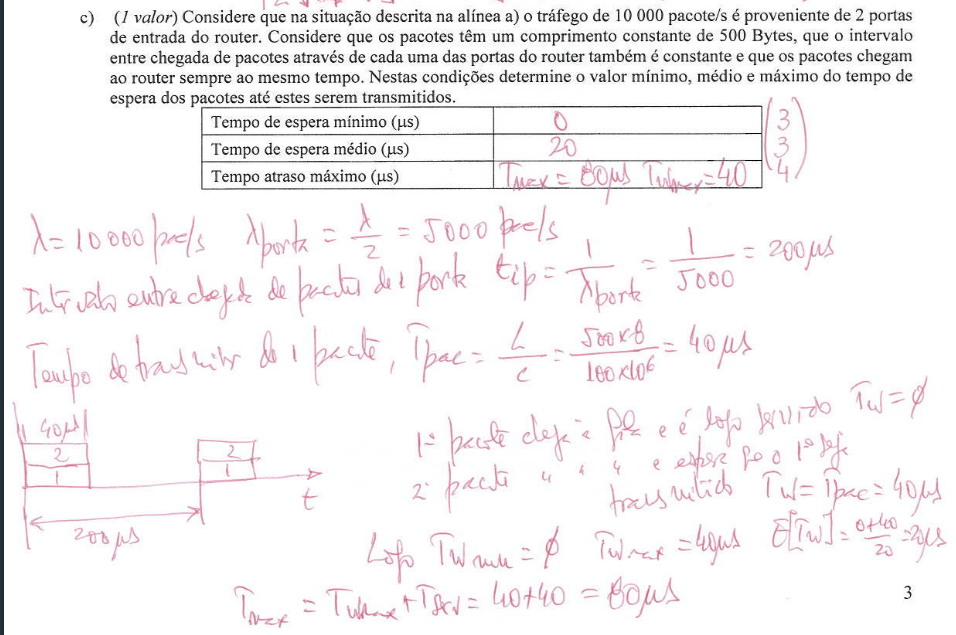 c) (1 valor) Considere que na situação descrita na alínea a) o tráfego de 10 000 pacote/s é proveniente de 2 portas
de entrada do router. Considere que os pacotes têm um comprimento constante de 500 Bytes, que o intervalo
entre chegada de pacotes através de cada uma das portas do router também é constante e que os pacotes chegam
ao router sempre ao mesmo tempo. Nestas condições determine o valor mínimo, médio e máximo do tempo de
espera dos pacotes até estes serem transmitidos.
Tempo de espera mínimo (μs) 0 3
Tempo de espera médio (μs) 20 3
Tempo atraso máximo (μs) Tmax = 80μs Twmax=40 4
λ=10000 pac/s λporta = λ/2 = 5000 pac/s
Intervalo entre chegada de pacotes de 1 porta tip = 1/λporta = 1/5000 = 200μs
Tempo de transmissão de 1 pacote, Tpac = L/c = 500x8/100x10⁶ = 40μs
40μs
2 2
1 1
t
200μs
1º pacote chega à fila e é logo servido Tw=∅
2º pacote " " " e espera q o 1º seja
transmitido Tw=Tpac=40μs
Logo Twmin=∅ Twmax=40μs E[Tw]=0+40/20=20μs
Tmax = Twmax+Tserv= 40+40 = 80μs
3